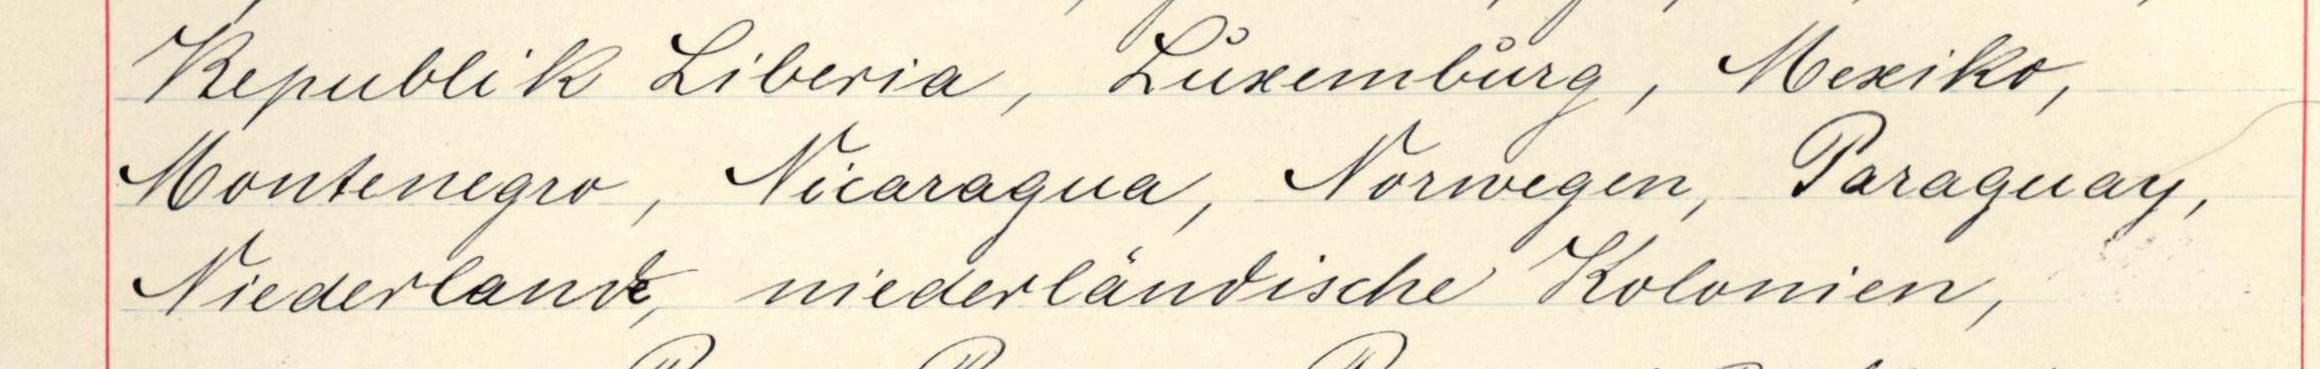 Republik Liberia, Luxemburg, Mexiko,
Montenegro, Nicaragua, Norwegen, Paraguay,
Niederlande, niederländische Kolonien,